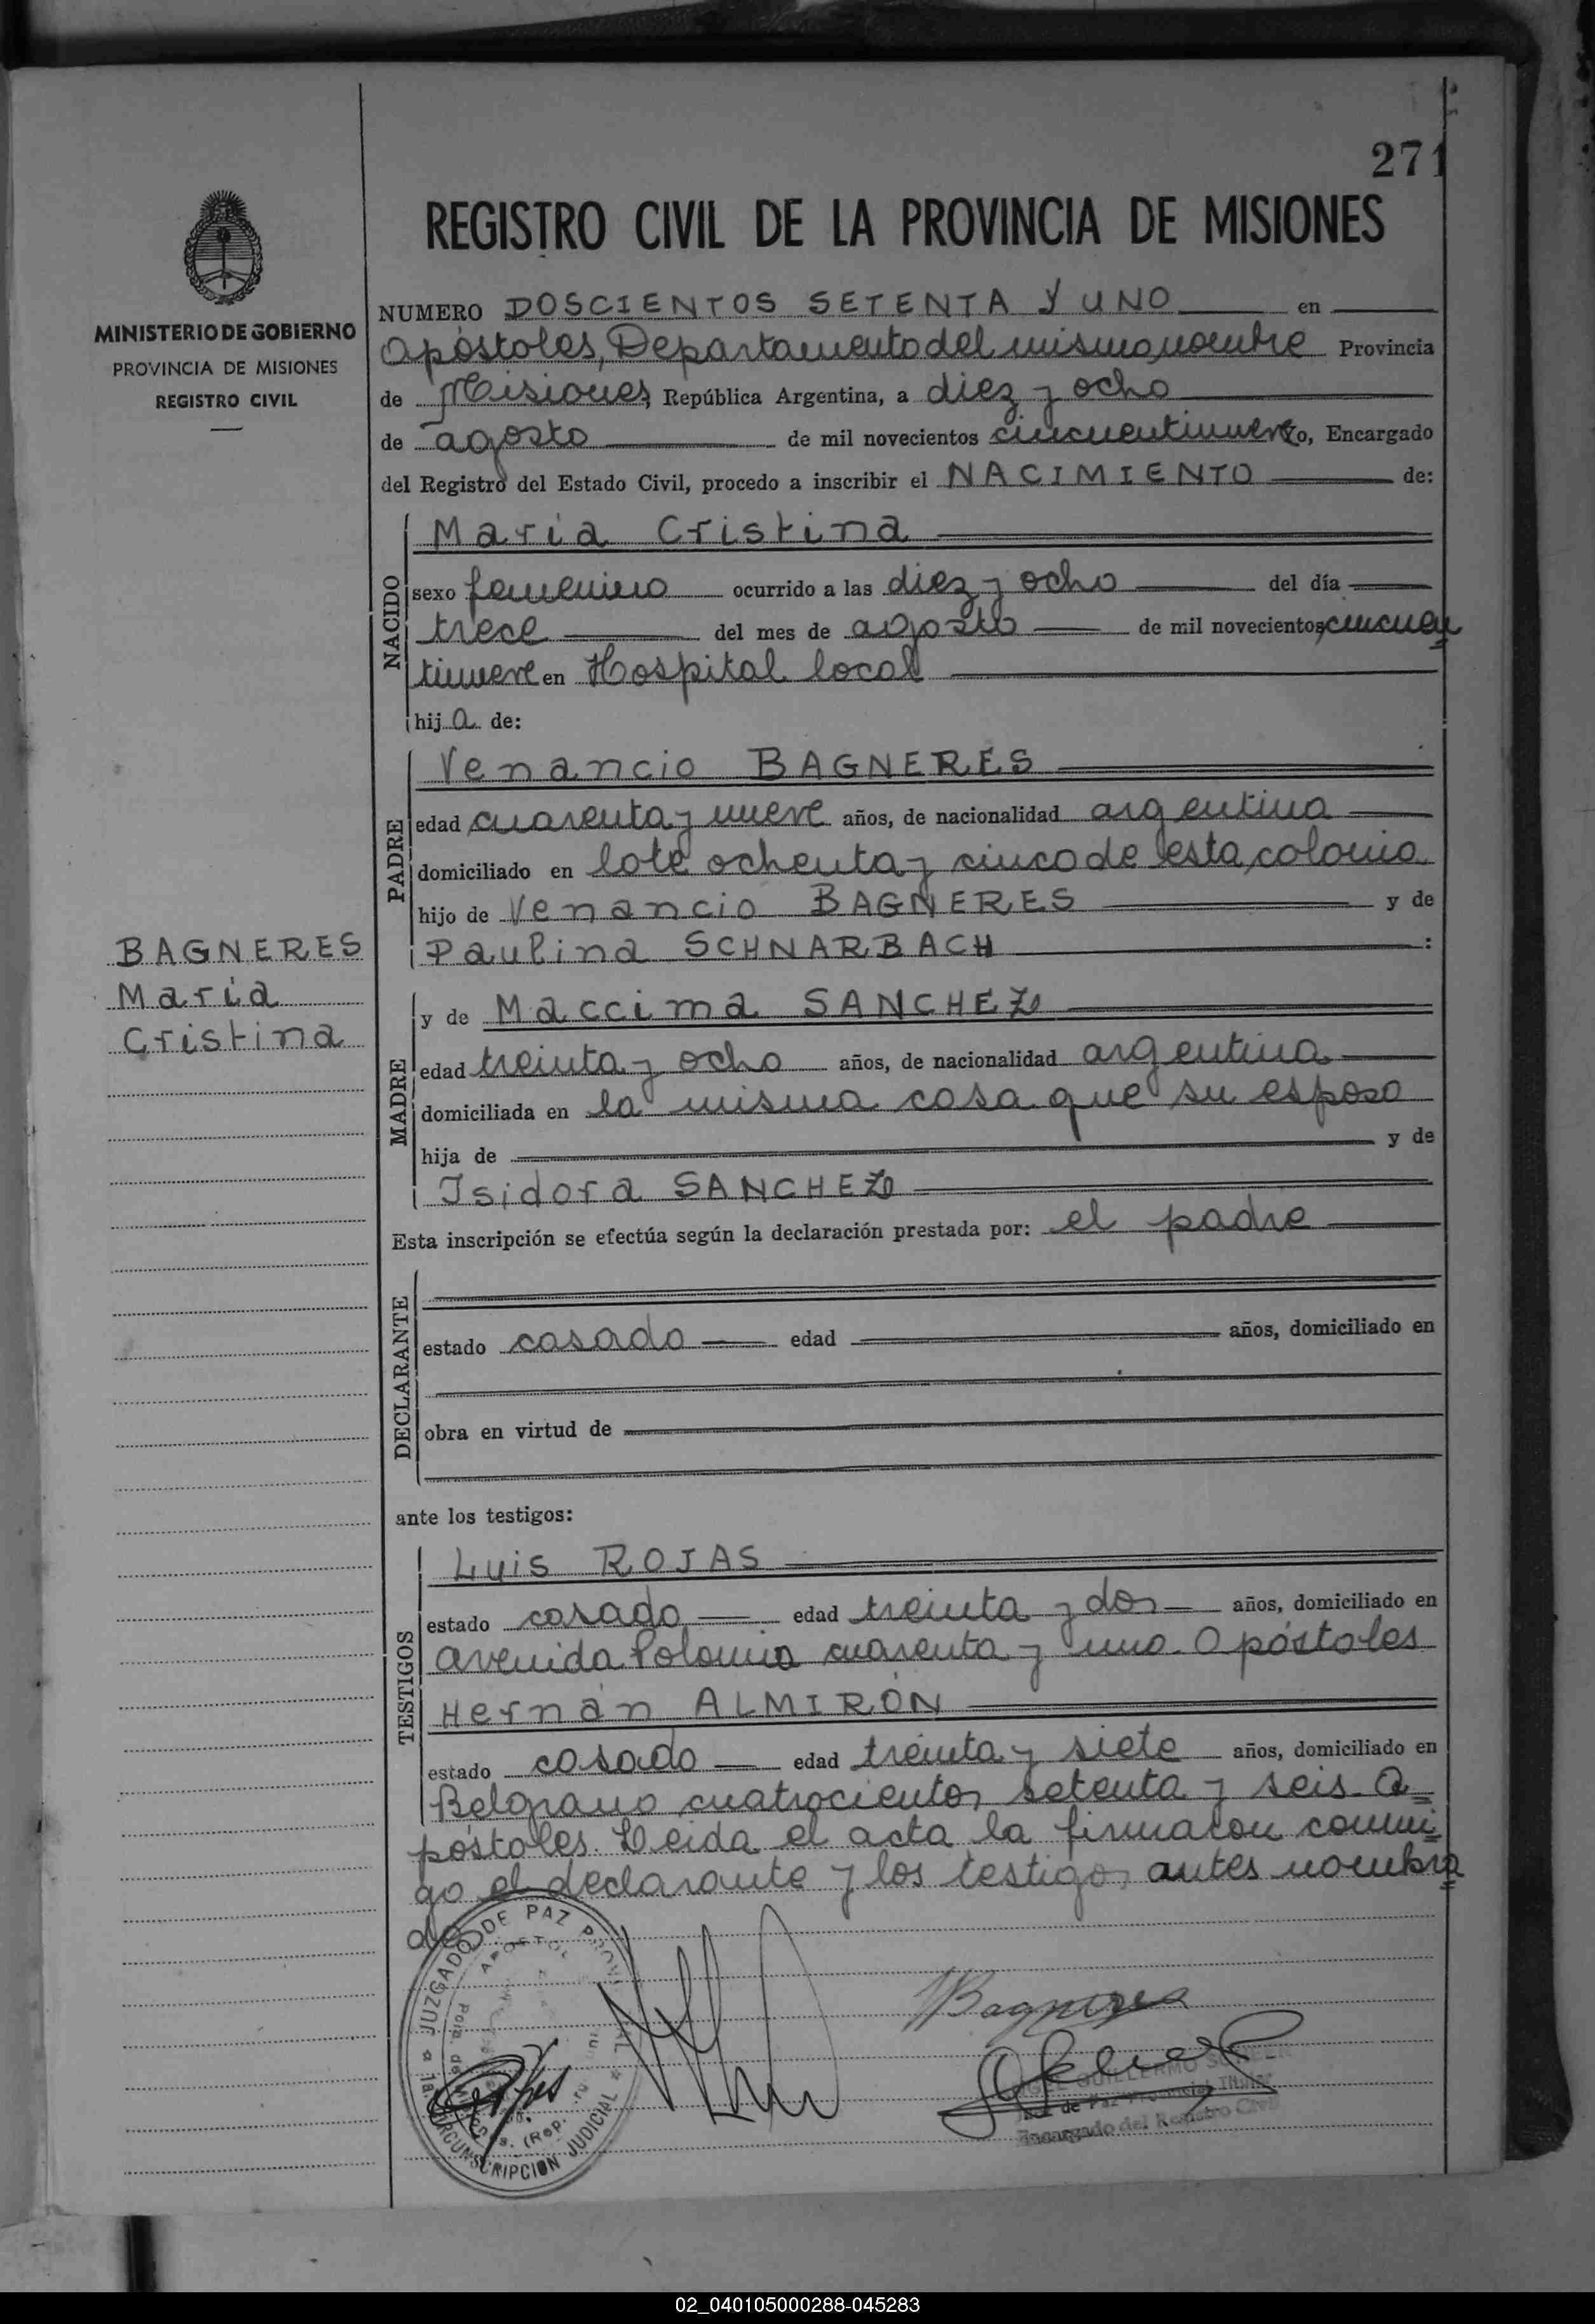 271
REGISTRO CIVIL DE LA PROVINCIA DE MISIONES
MINISTERIO DE GOBIERNO
PROVINCIA DE MISIONES
REGISTRO CIVIL
NUMERO DOSCIENTOS SETENTA Y UNO en
Apóstoles, Departamento del mismo nombre Provincia
de Misiones, República Argentina, a diez y ocho
de agosto de mil novecientos cincuentinueve yo, Encargado
del Registro del Estado Civil, procedo a inscribir el NACIMIENTO de:
NACIDO
María Cristina
sexo femenino ocurrido a las diez y ocho del día
trece del mes de agosto de mil novecientos cincuen
tinueve en Hospital local
hija de:
PADRE
Venancio BAGNERES
edad cuarenta y nueve años, de nacionalidad argentina
domiciliado en lote ochenta y cinco de esta colonia
hijo de Venancio BAGNERES y de
Paulina SCHNARBACH :
BAGNERES
María
Cristina
MADRE
y de Maccima SANCHEZ
edad treinta y ocho años, de nacionalidad argentina
domiciliada en la misma casa que su esposo
hija de y de
Isidora SANCHEZ
Esta inscripción se efectúa según la declaración prestada por: el padre
DECLARANTE
estado casado edad años, domiciliado en
obra en virtud de
ante los testigos:
TESTIGOS
Luis ROJAS
estado casado edad treinta y dos años, domiciliado en
Avenida Polonia cuarenta y uno. Apóstoles
Hernán ALMIRÓN
estado casado edad treinta y siete años, domiciliado en
Belgrano cuatrocientos setenta y seis. A=
póstoles. Leida el acta la firmaron conmi=
go el declarante y los testigos antes nombra=
dos
JUZGADO DE PAZ
CIRCUNSCRIPCION JUDICIAL
VBagneres
GUILLERMO
Juez de Paz Provincial Titular
Encargado del Registro Civil
02_040105000288-045283